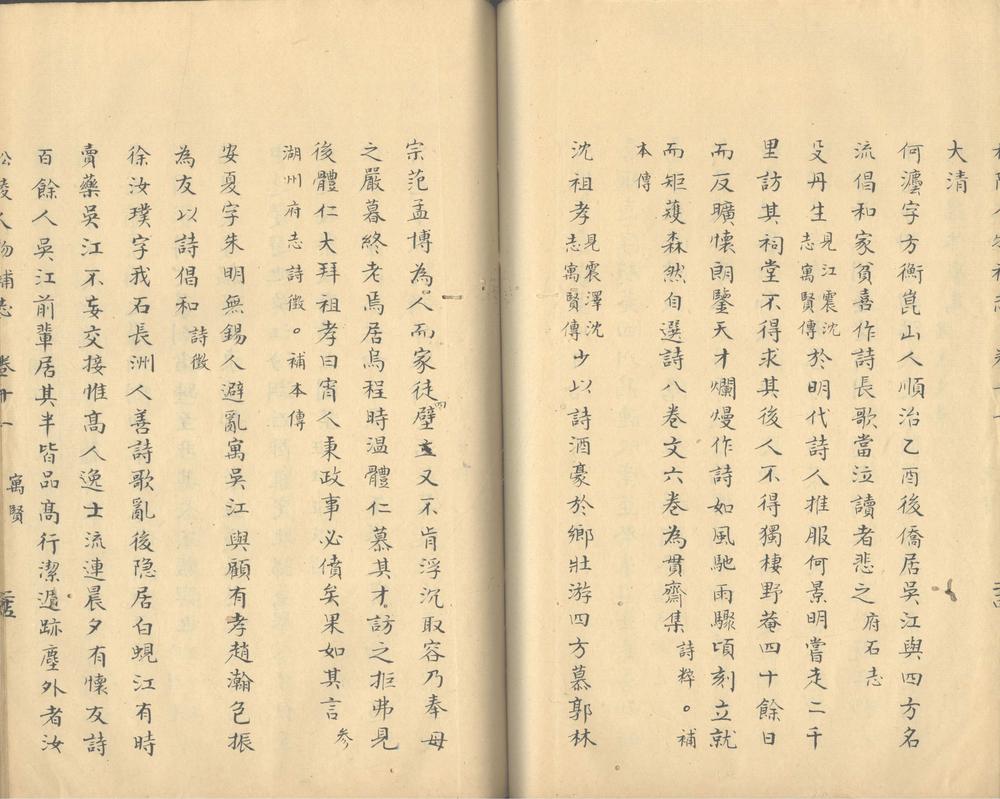 大清
何𤅀字方衡崑山人順治乙酉後僑居吳江與四方名
流倡和家貧喜作詩長歌當泣讀者悲之府石志
殳丹生見江震沈志寓賢傳於明代詩人推服何景明嘗走二千
里訪其祠堂不得求其後人不得獨棲野菴四十餘日
而反曠懷朗鑒天才爛熳作詩如風馳雨驟頃刻立就
而矩矱森然自選詩八卷文六卷為貫齋集詩粹。補
本傳
沈祖孝見震澤沈志寓賢傳少以詩酒豪於鄉壯游四方慕郭林
宗范孟博為人而家徒四壁立又不肯浮沉取容乃奉母
之嚴暮終老焉居烏程時溫體仁慕其才訪之拒弗見
後體仁大拜祖孝曰宵人秉政事必僨矣果如其言參
湖州府志詩徵。補本傳
安夏字朱明無錫人避亂寓吳江與顧有孝趙瀚包振
為友以詩倡和詩徵
徐汝璞字我石長洲人善詩歌亂後隐居白蜆江有時
賣藥吳江不妄交接惟髙人逸士流連晨夕有懷友詩
百餘人吳江前輩居其半皆品髙行潔遁跡塵外者汝
松陵人物補志 卷十一 寓賢